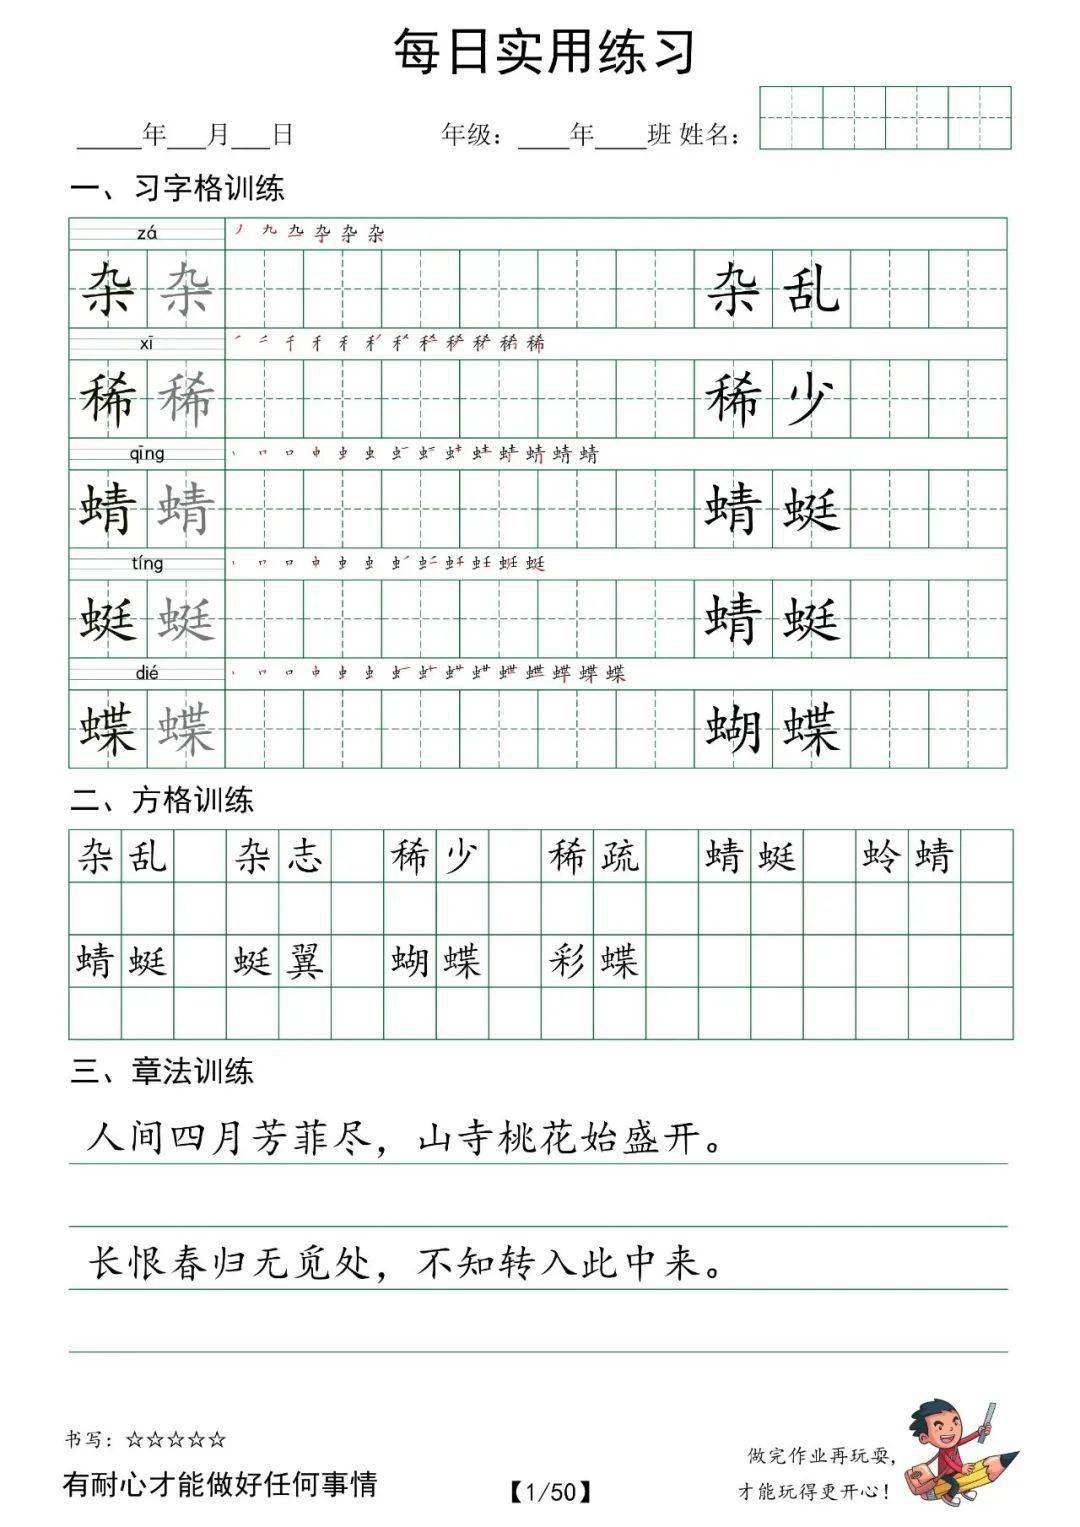 每日实用练习
_____年___月___日 年级：____年____班 姓名：
一、习字格训练
zá
杂 杂 杂 乱
xī
稀 稀 稀 少
qīng
蜻 蜻 蜻 蜓
tíng
蜓 蜓 蜻 蜓
dié
蝶 蝶 蝴 蝶
二、方格训练
杂 乱 杂 志 稀 少 稀 疏 蜻 蜓 蛉 蜻
蜻 蜓 蜓 翼 蝴 蝶 彩 蝶
三、章法训练
人间四月芳菲尽，山寺桃花始盛开。
长恨春归无觅处，不知转入此中来。
书写：☆☆☆☆☆
有耐心才能做好任何事情
【1/50】
做完作业再玩耍，
才能玩得更开心！